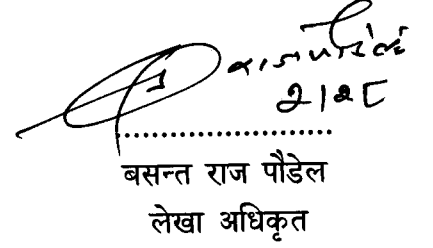 २/२८
बसन्त राज पौडेल
लेखा अधिकृत